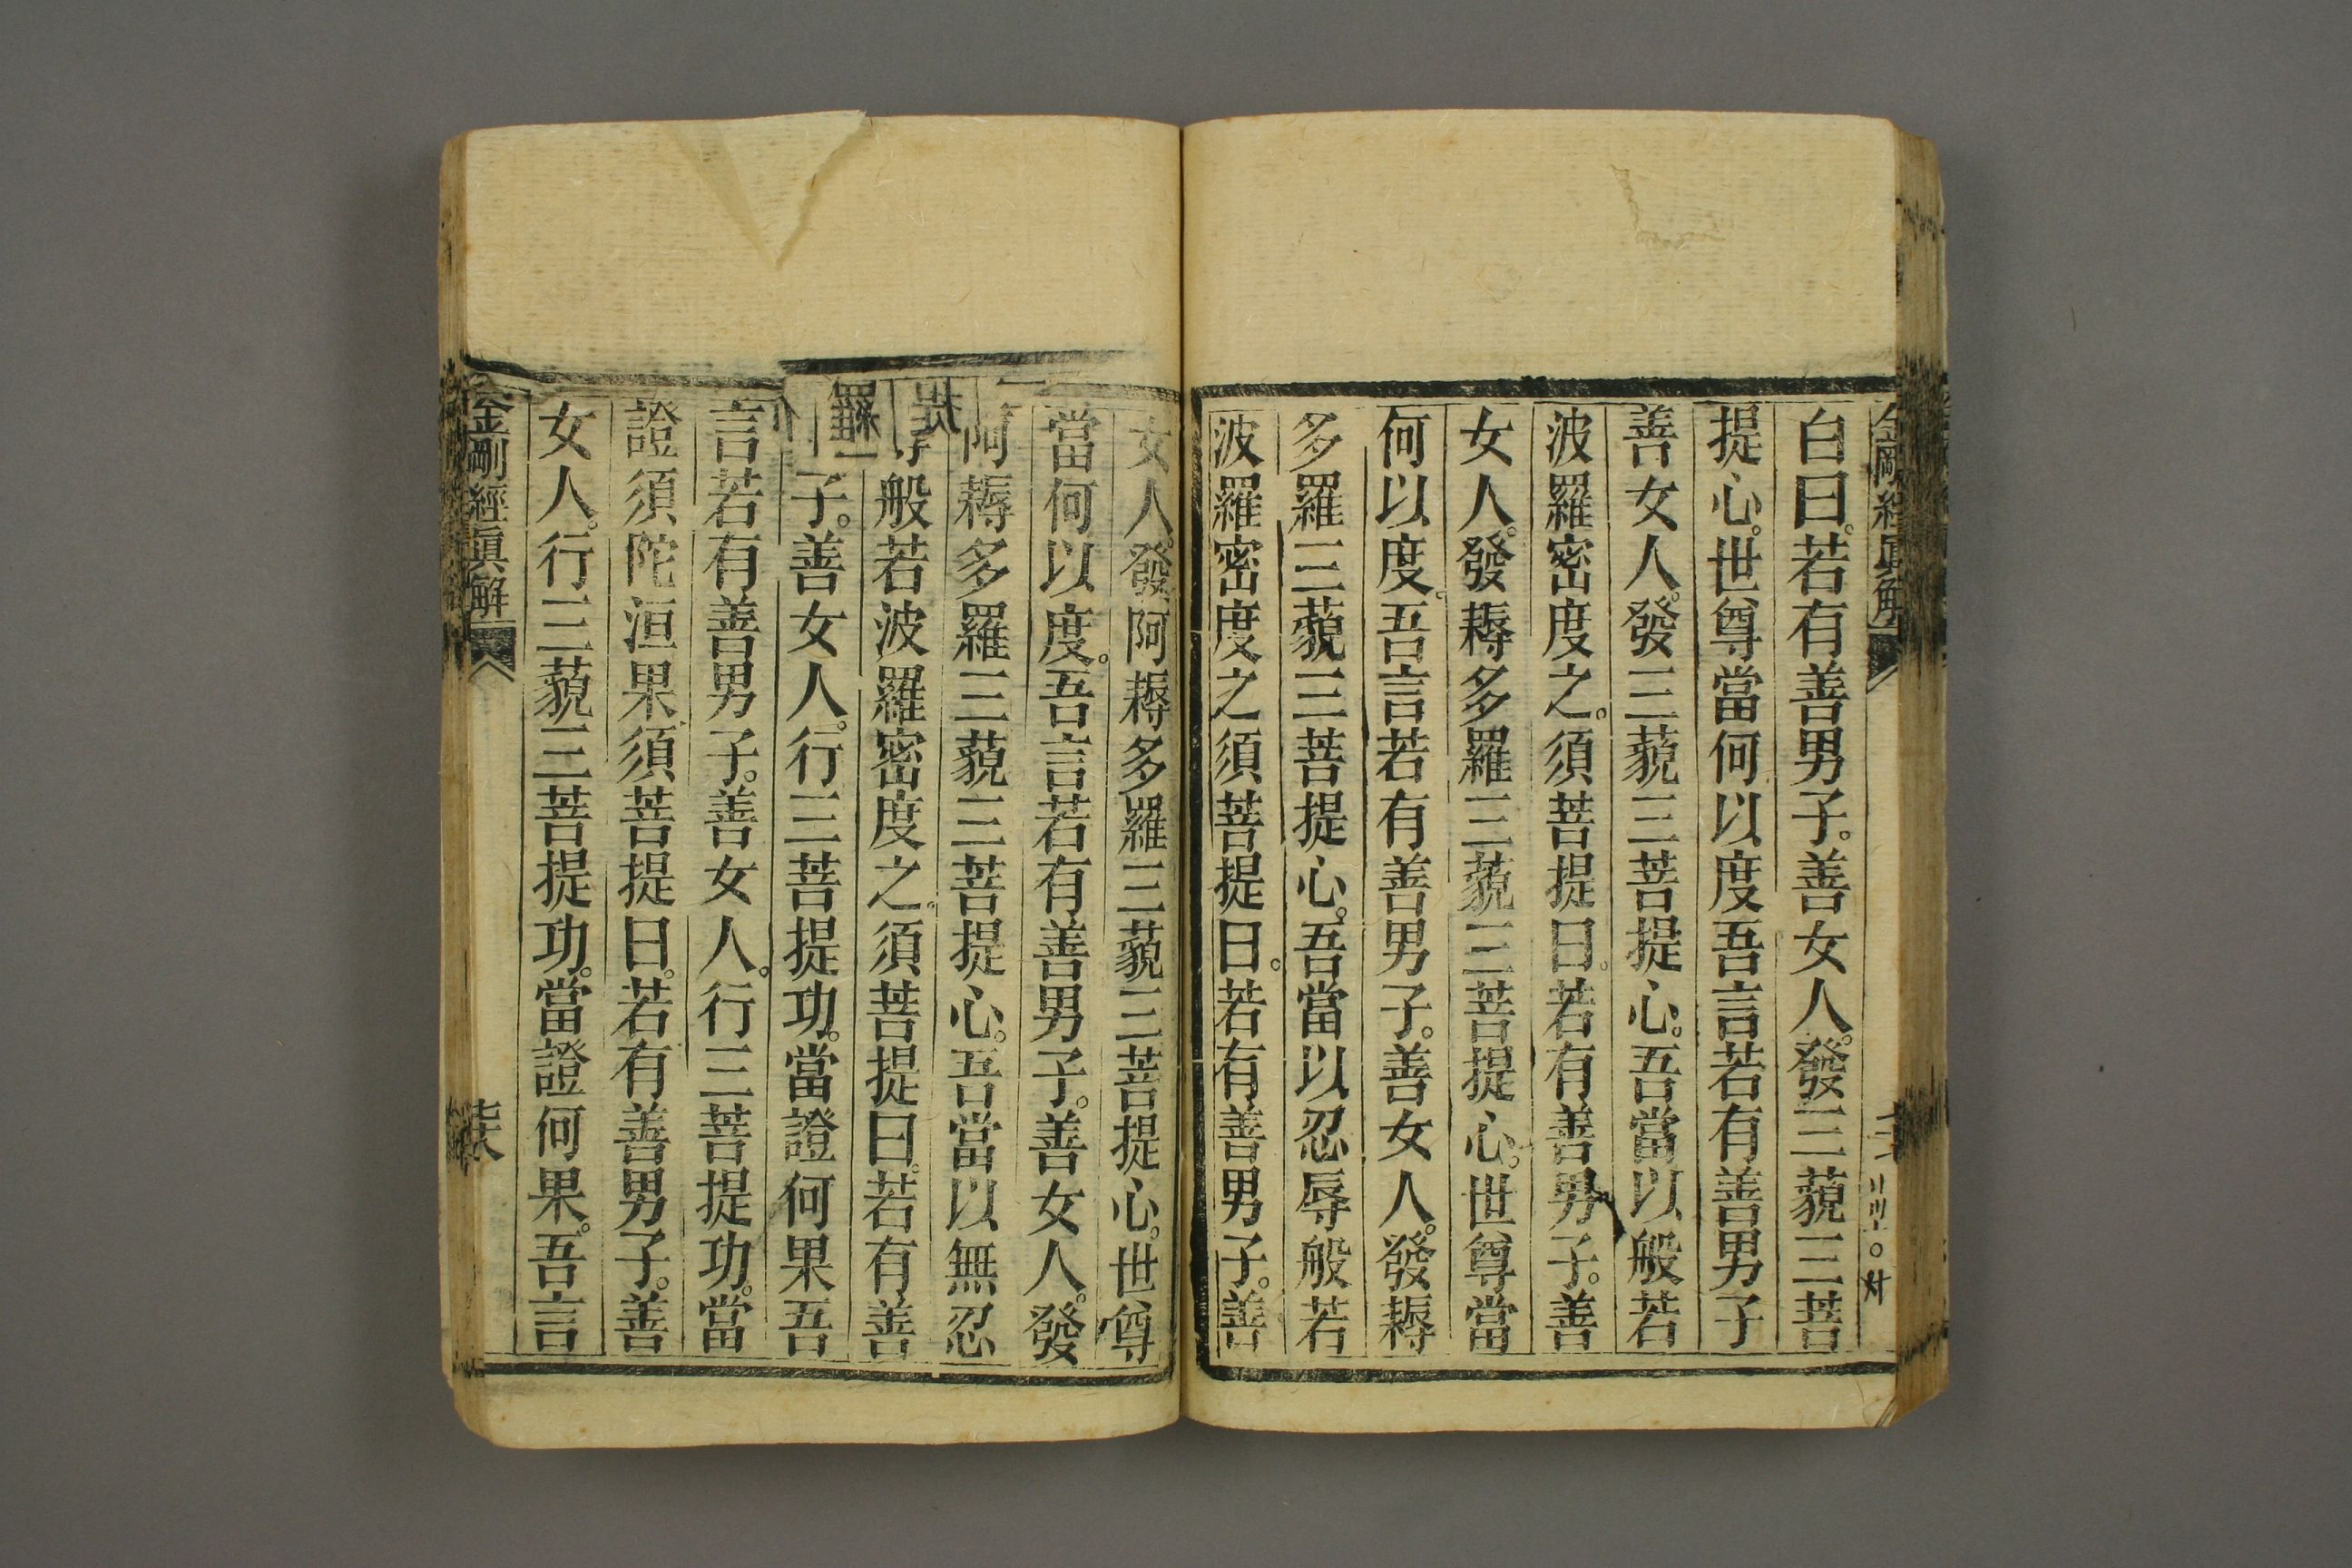 金剛經眞解
白曰。若有善男子。善女人。發三藐三菩
提心。世尊當何以度吾言若有善男子
善女人。發三藐三菩提心。吾當以般若
波羅密度之。須菩提曰。若有善男子。善
女人。發耨多羅三藐三菩提心。世尊當
何以度。吾言若有善男子。善女人。發耨
多羅三藐三菩提心。吾當以忍辱般若
波羅密度之須菩提曰。若有善男子。善
女人。發阿耨多羅三藐三菩提心。世尊
當何以度。吾言若有善男子。善女人。發
阿耨多羅三藐三菩提心。吾當以無忍
般若波羅密度之。須菩提曰。若有善
子。善女人。行三菩提功。當證何果吾
言若有善男子。善女人。行三菩提功。當
證須陀洹果須菩提曰。若有善男子。善
女人。行三藐三菩提功。當證何果。吾言
金剛經眞解